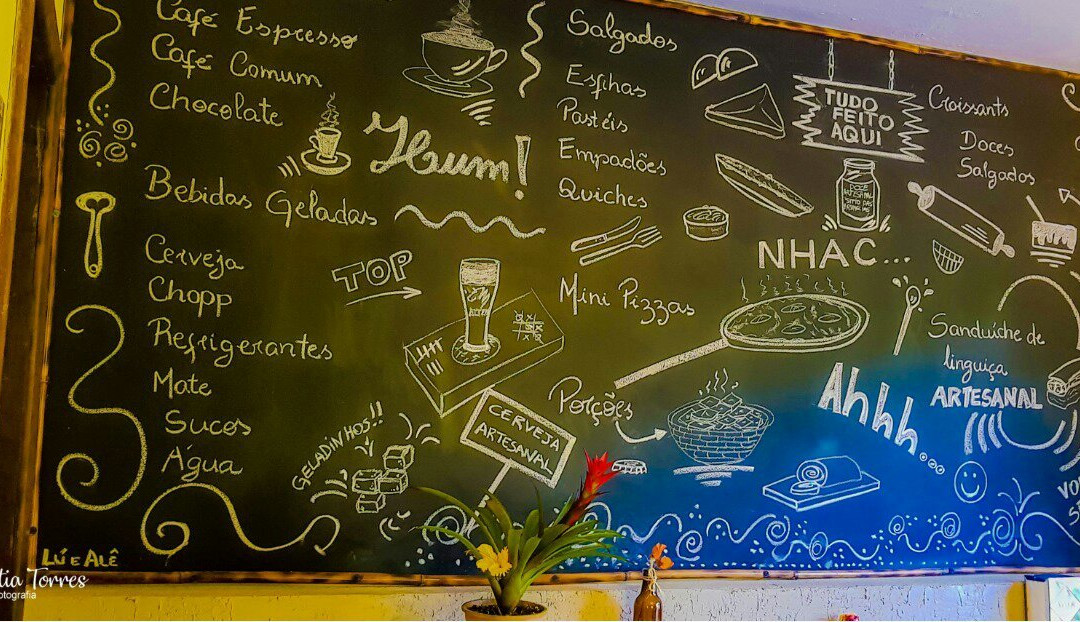 Café Espresso
Café Comum
Chocolate
Hum!
Bebidas Geladas
Cerveja
Chopp
Refrigerantes
Mate
Sucos
Água
TOP
GELADINHOS!!
CERVEJA
ARTESANAL
Salgados
Esfihas
Pastéis
Empadões
Quiches
Mini Pizzas
Porções
TUDO
FEITO
AQUI
NHAC...
Croissants
Doces
Salgados
Sanduíche de
linguiça
ARTESANAL
Ahhh...
LÚ E ALÊ
Torres